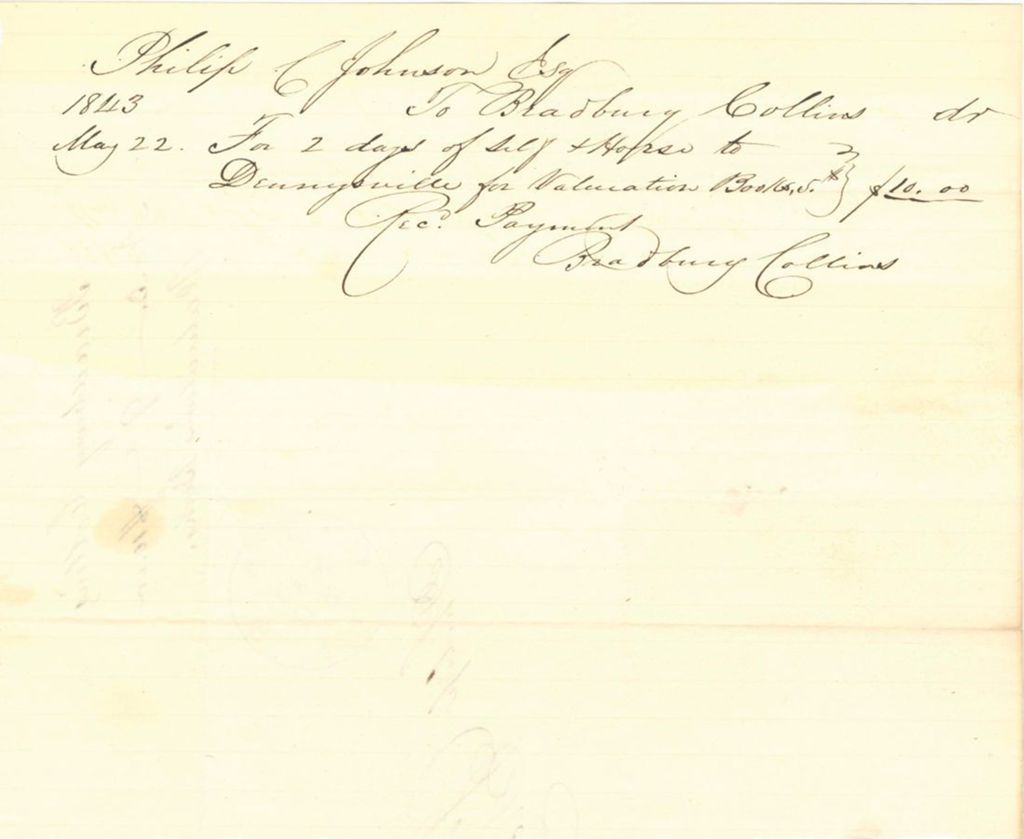 Philip C Johnson Esq
1843 To Bradbury Collins dr
May 22. For 2 days of self & Horse to
Dennysville for Valueation Books, 5.$ } $10.00
Rec.d Payment
Bradbury Collins